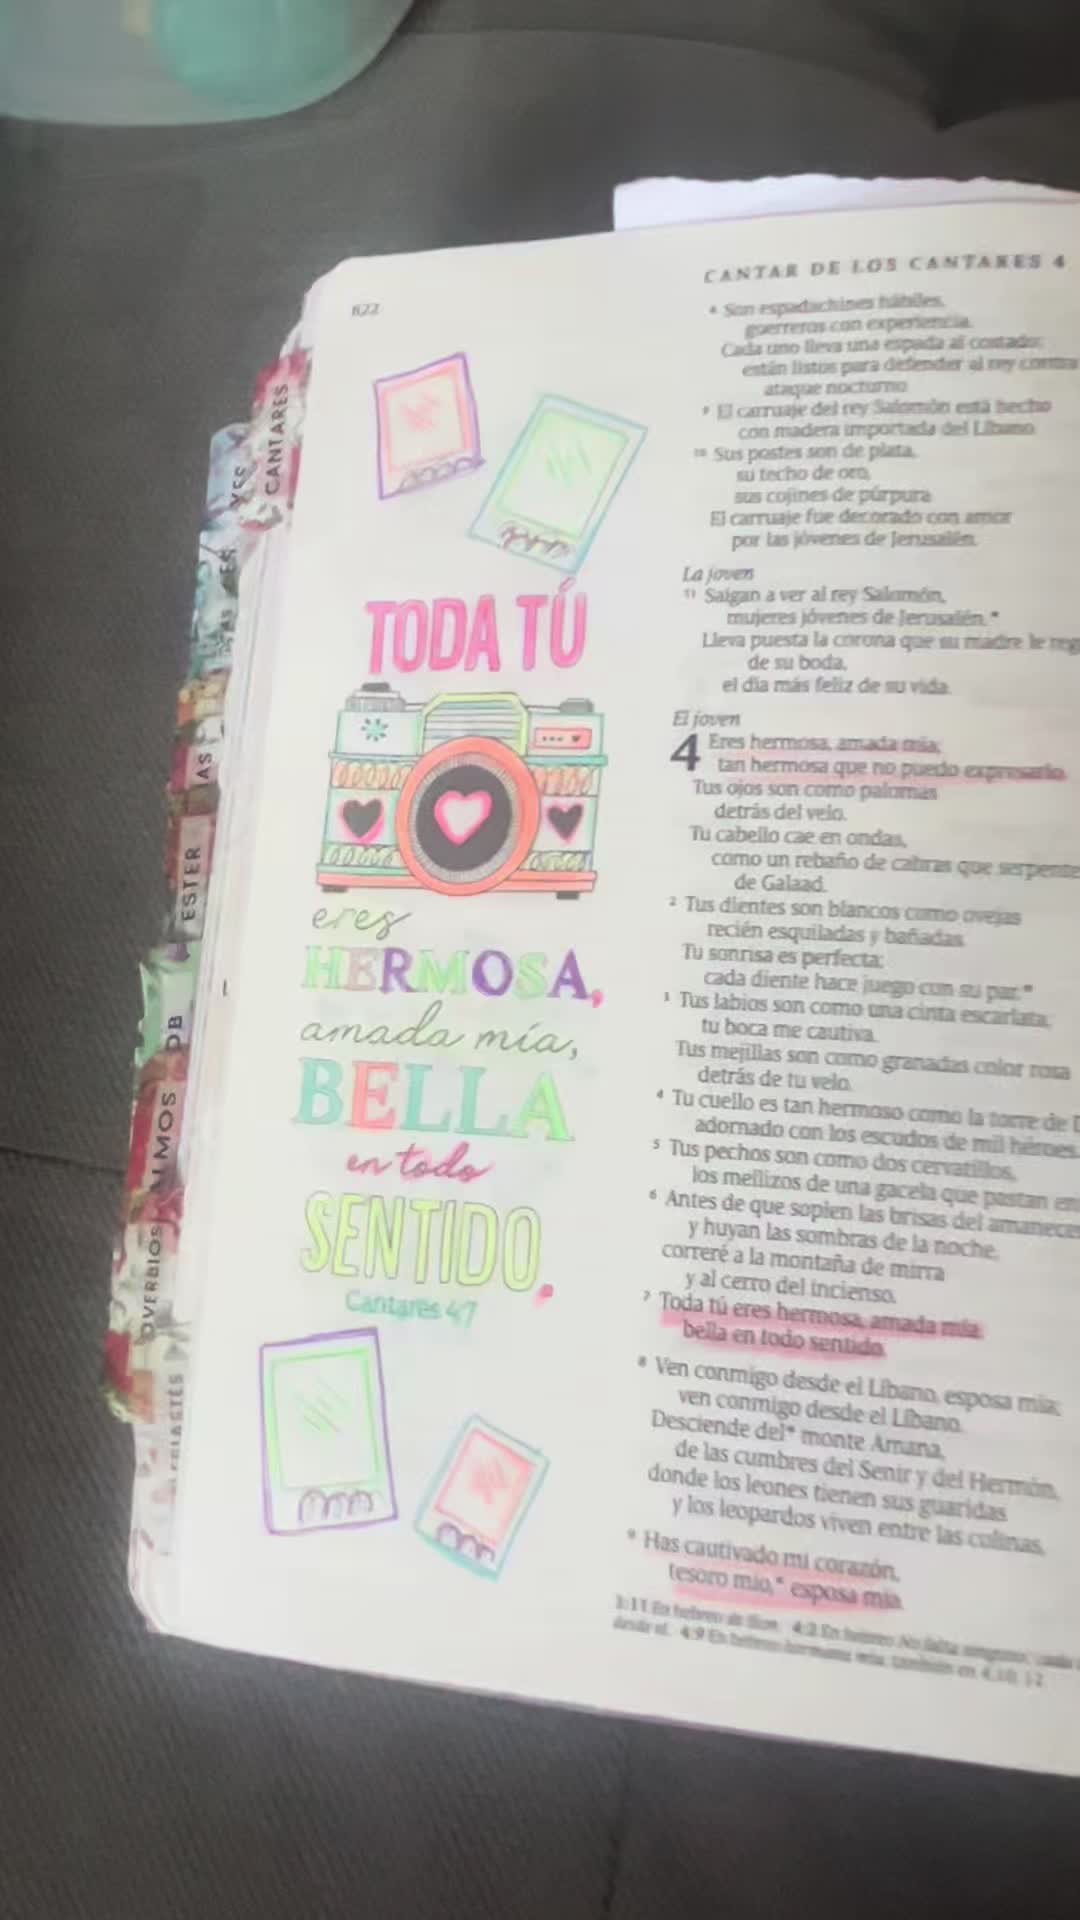 622
CANTAR DE LOS CANTARES 4
TODA TÚ
eres
HERMOSA,
amada mía,
BELLA
en todo
SENTIDO.
Cantares 4:7
⁸ Son espadachines hábiles,
guerreros con experiencia.
Cada uno lleva una espada al costado;
están listos para defender al rey contra
ataque nocturno.
⁹ El carruaje del rey Salomón está hecho
con madera importada del Líbano.
¹⁰ Sus postes son de plata,
su techo de oro,
sus cojines de púrpura.
El carruaje fue decorado con amor
por las jóvenes de Jerusalén.
La joven
¹¹ Salgan a ver al rey Salomón,
mujeres jóvenes de Jerusalén.*
Lleva puesta la corona que su madre le reg
de su boda,
el día más feliz de su vida.
El joven
4 Eres hermosa, amada mía;
tan hermosa que no puedo expresarlo.
Tus ojos son como palomas
detrás del velo.
Tu cabello cae en ondas,
como un rebaño de cabras que serpente
de Galaad.
² Tus dientes son blancos como ovejas
recién esquiladas y bañadas.
Tu sonrisa es perfecta;
cada diente hace juego con su par.*
³ Tus labios son como una cinta escarlata;
tu boca me cautiva.
Tus mejillas son como granadas color rosa
detrás de tu velo.
⁴ Tu cuello es tan hermoso como la torre de D
adornado con los escudos de mil héroes.
⁵ Tus pechos son como dos cervatillos,
los mellizos de una gacela que pastan en
⁶ Antes de que soplen las brisas del amanecer
y huyan las sombras de la noche,
correré a la montaña de mirra
y al cerro del incienso.
⁷ Toda tú eres hermosa, amada mía,
bella en todo sentido.
⁸ Ven conmigo desde el Líbano, esposa mía;
ven conmigo desde el Líbano.
Desciende del* monte Amana,
de las cumbres del Senir y del Hermón,
donde los leones tienen sus guaridas
y los leopardos viven entre las colinas.
⁹ Has cautivado mi corazón,
tesoro mío,* esposa mía.
3:11 En hebreo de Sion. 4:2 En hebreo No falta ninguno; cada
desde el. 4:9 En hebreo hermana mía; también en 4:10, 12
CANTARES
YES
AS
ESTER
OB
SALMOS
OVERBIOS